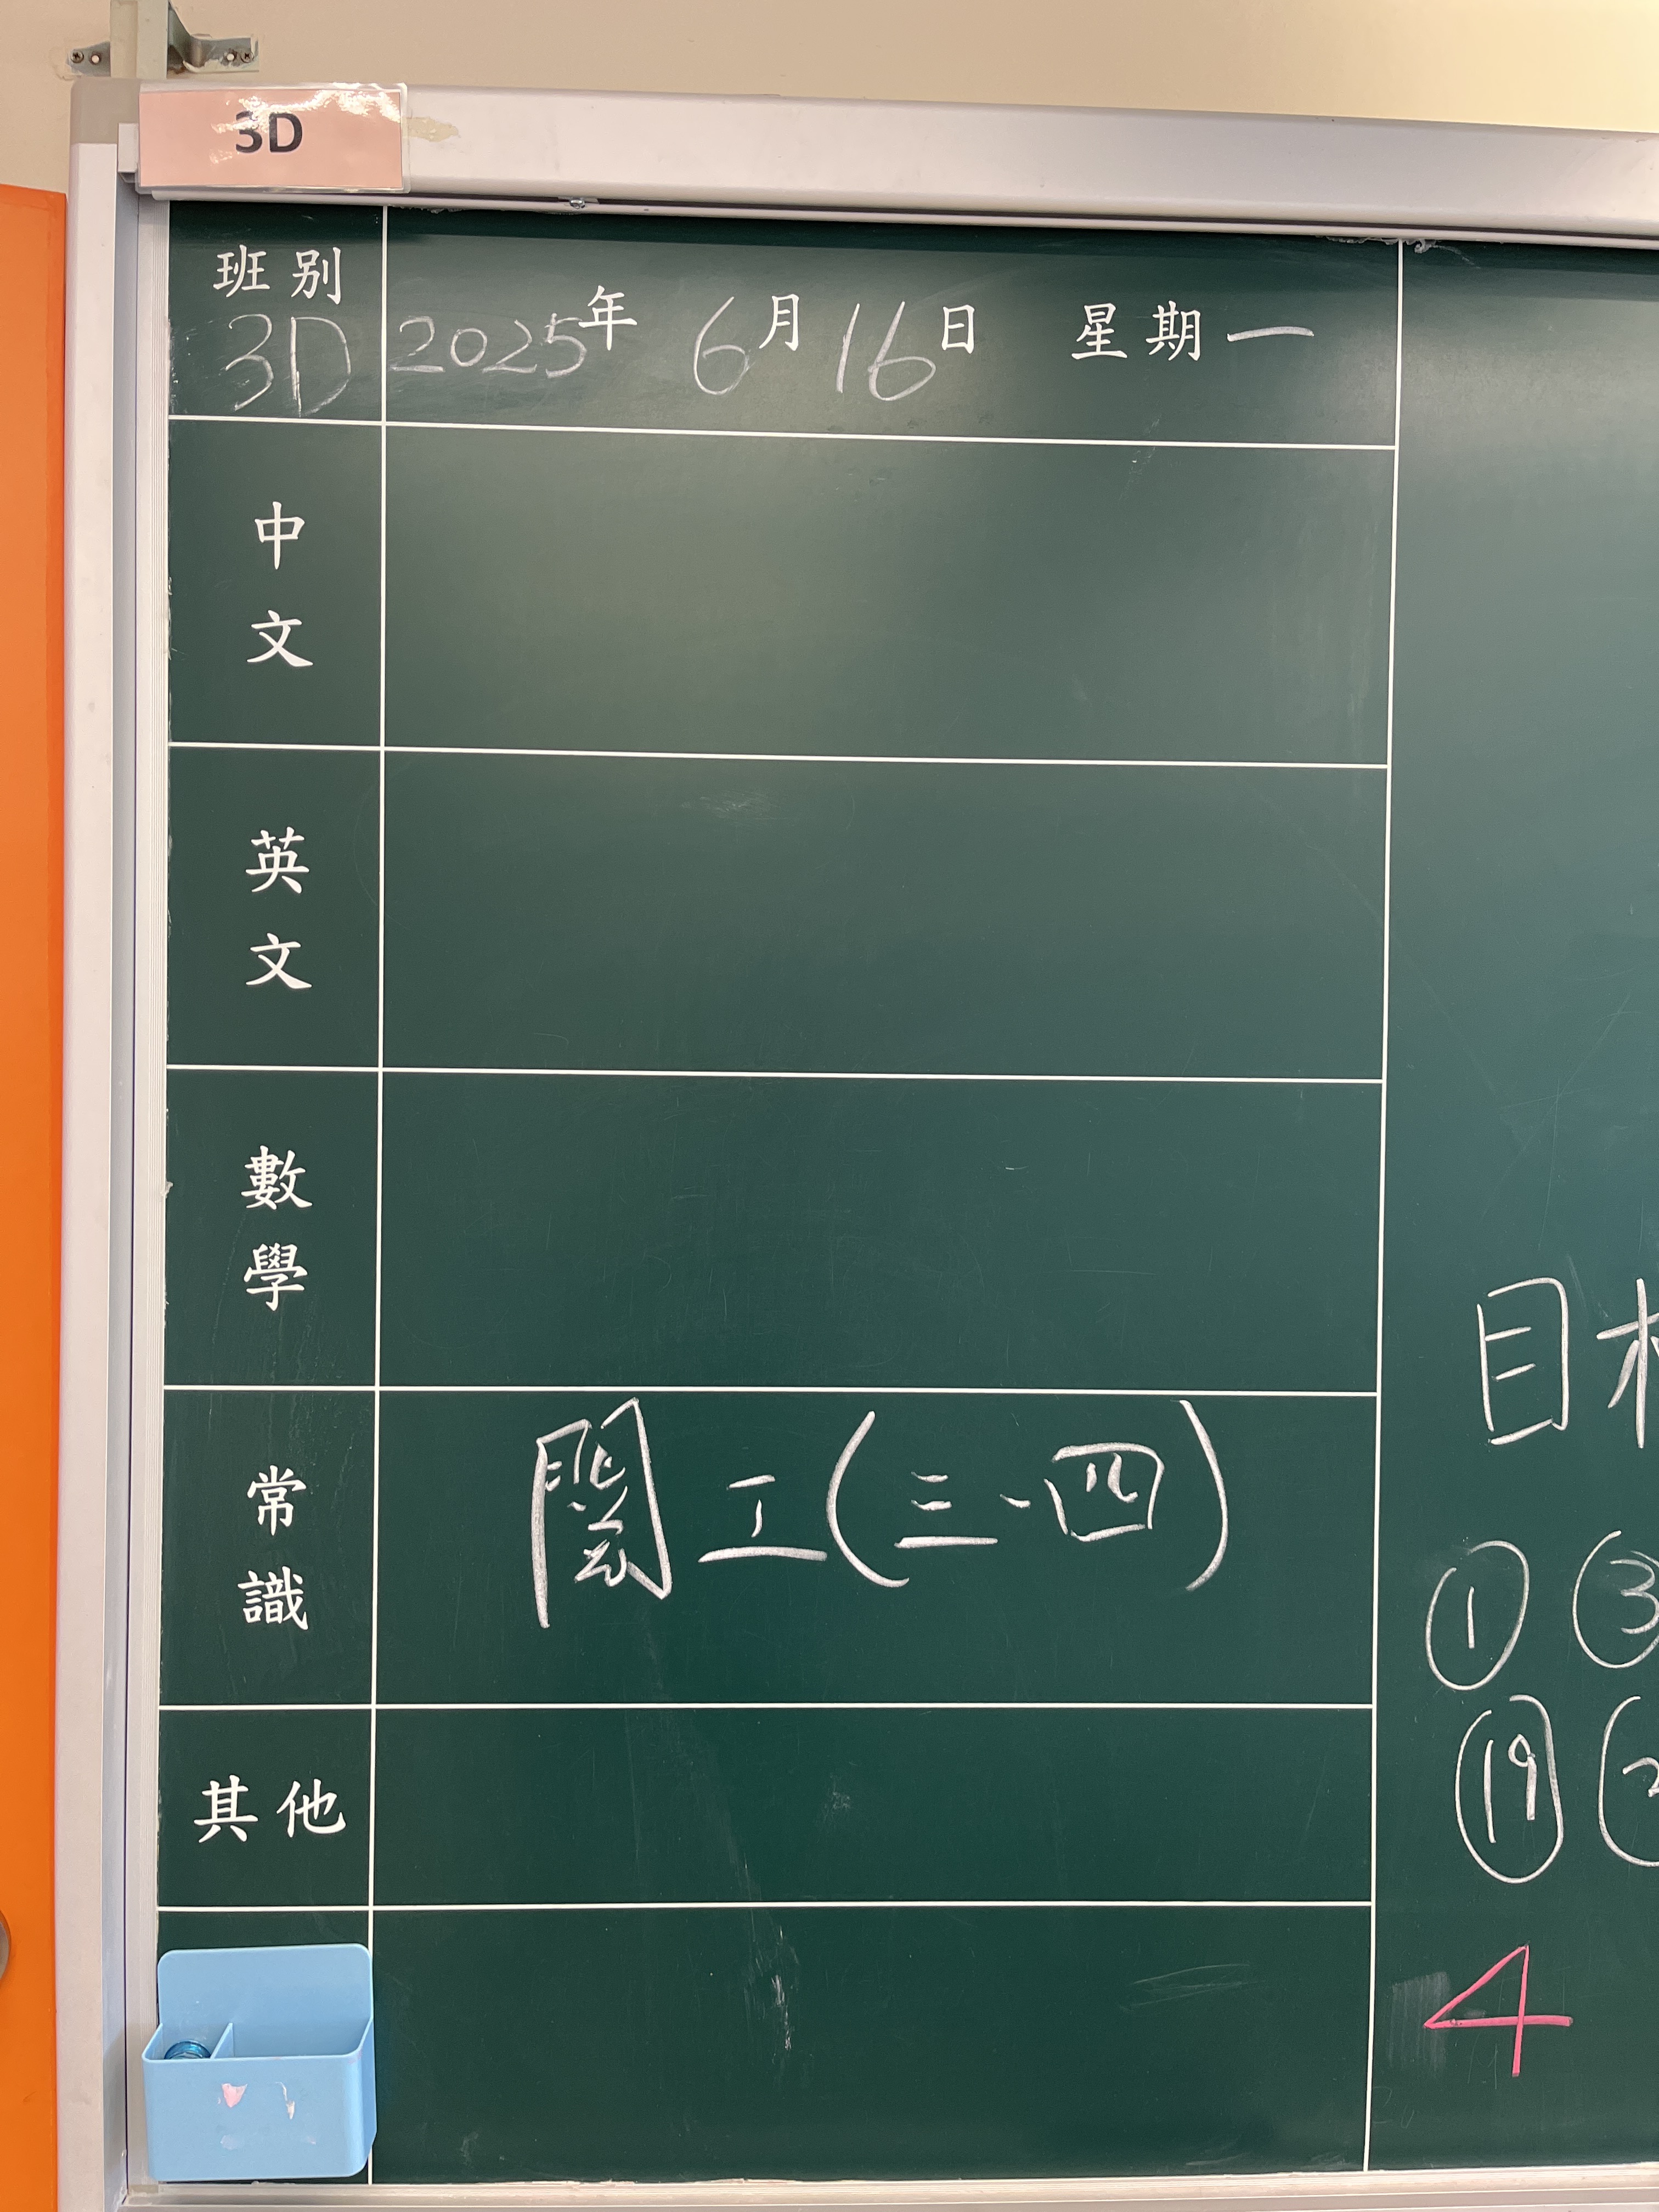 3D
班別
3D
2025年 6月 16日 星期一
中文
英文
數學
常識
工(三、四)
其他
目
① ③
⑲
4